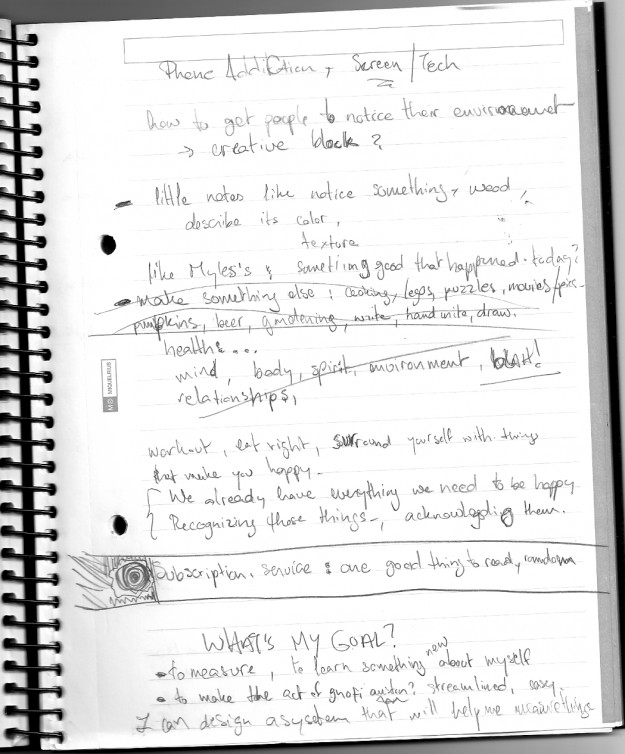 Phone Addiction, Screen/Tech
how to get people to notice their environment
→ creative block?
- little notes like notice something, wood,
describe its color,
texture
like Myles's & something good that happened today?
- make something else: cooking, legos, puzzles, movies/
pumpkins, beer, gardening, write, hand write, draw.
health: ...
mind, body, spirit, environment, blah!
relationships,
MIQUELRIUS
workout, eat right, surround yourself with things
that make you happy.
We already have everything we need to be happy
Recognizing those things, acknowledging them.
Subscription service: one good thing to read, random
WHAT'S MY GOAL?
- to measure, to learn something new about myself
- to make the act of streamlined, easy,
I can design a system that will help me measure things